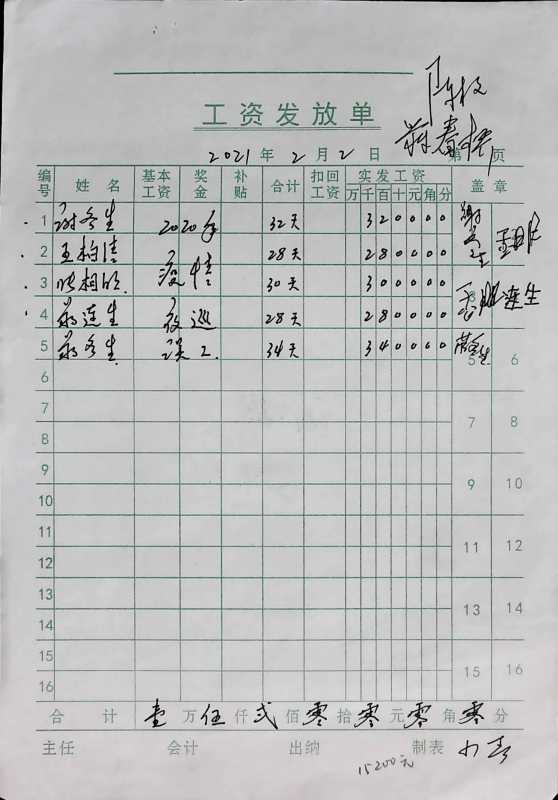 陈校
工资发放单
蒋春梧
2021 年 2 月 2 日 第 页
编号 姓 名 基本工资 奖金 补贴 合计 扣回工资 实发工资 万 千 百 十 元 角 分 盖 章
1 谢冬生 2020年 32天 3 2 0 0 0 0
2 王柏清 疫情 28天 2 8 0 0 0 0
3 相 30天 3 0 0 0 0 0
4 蒋连生 夜巡 28天 2 8 0 0 0 0
5 蒋冬生 误工. 34天 3 4 0 0 0 0 5 6
6
7 7 8
8
9 9 10
10
11 11 12
12
13 13 14
14
15 15 16
16
合 计 壹 万 伍 仟 贰 佰 零 拾 零 元 零 角 零 分
主任 会计 出纳 制表
15200元